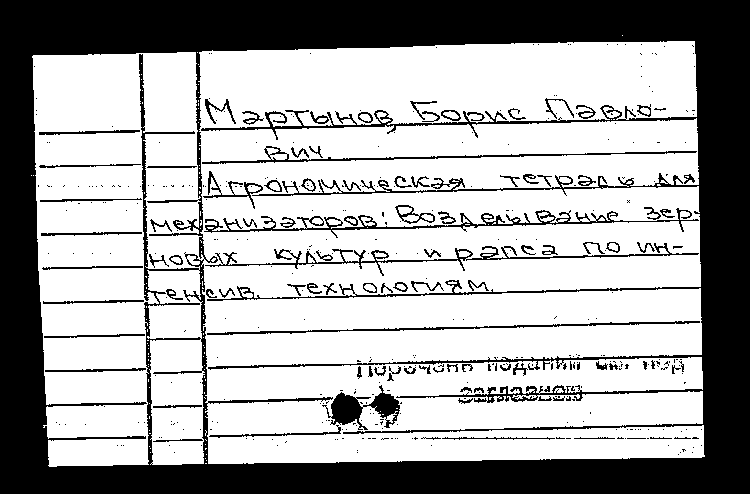 Мартынов, Борис Павло-
вич.
Агрономическая тетрадь для
механизаторов: Возделывание зер-
новых культур и рапса по ин-
тенсив. технологиям.
Перечень изданий см. под
заглавием